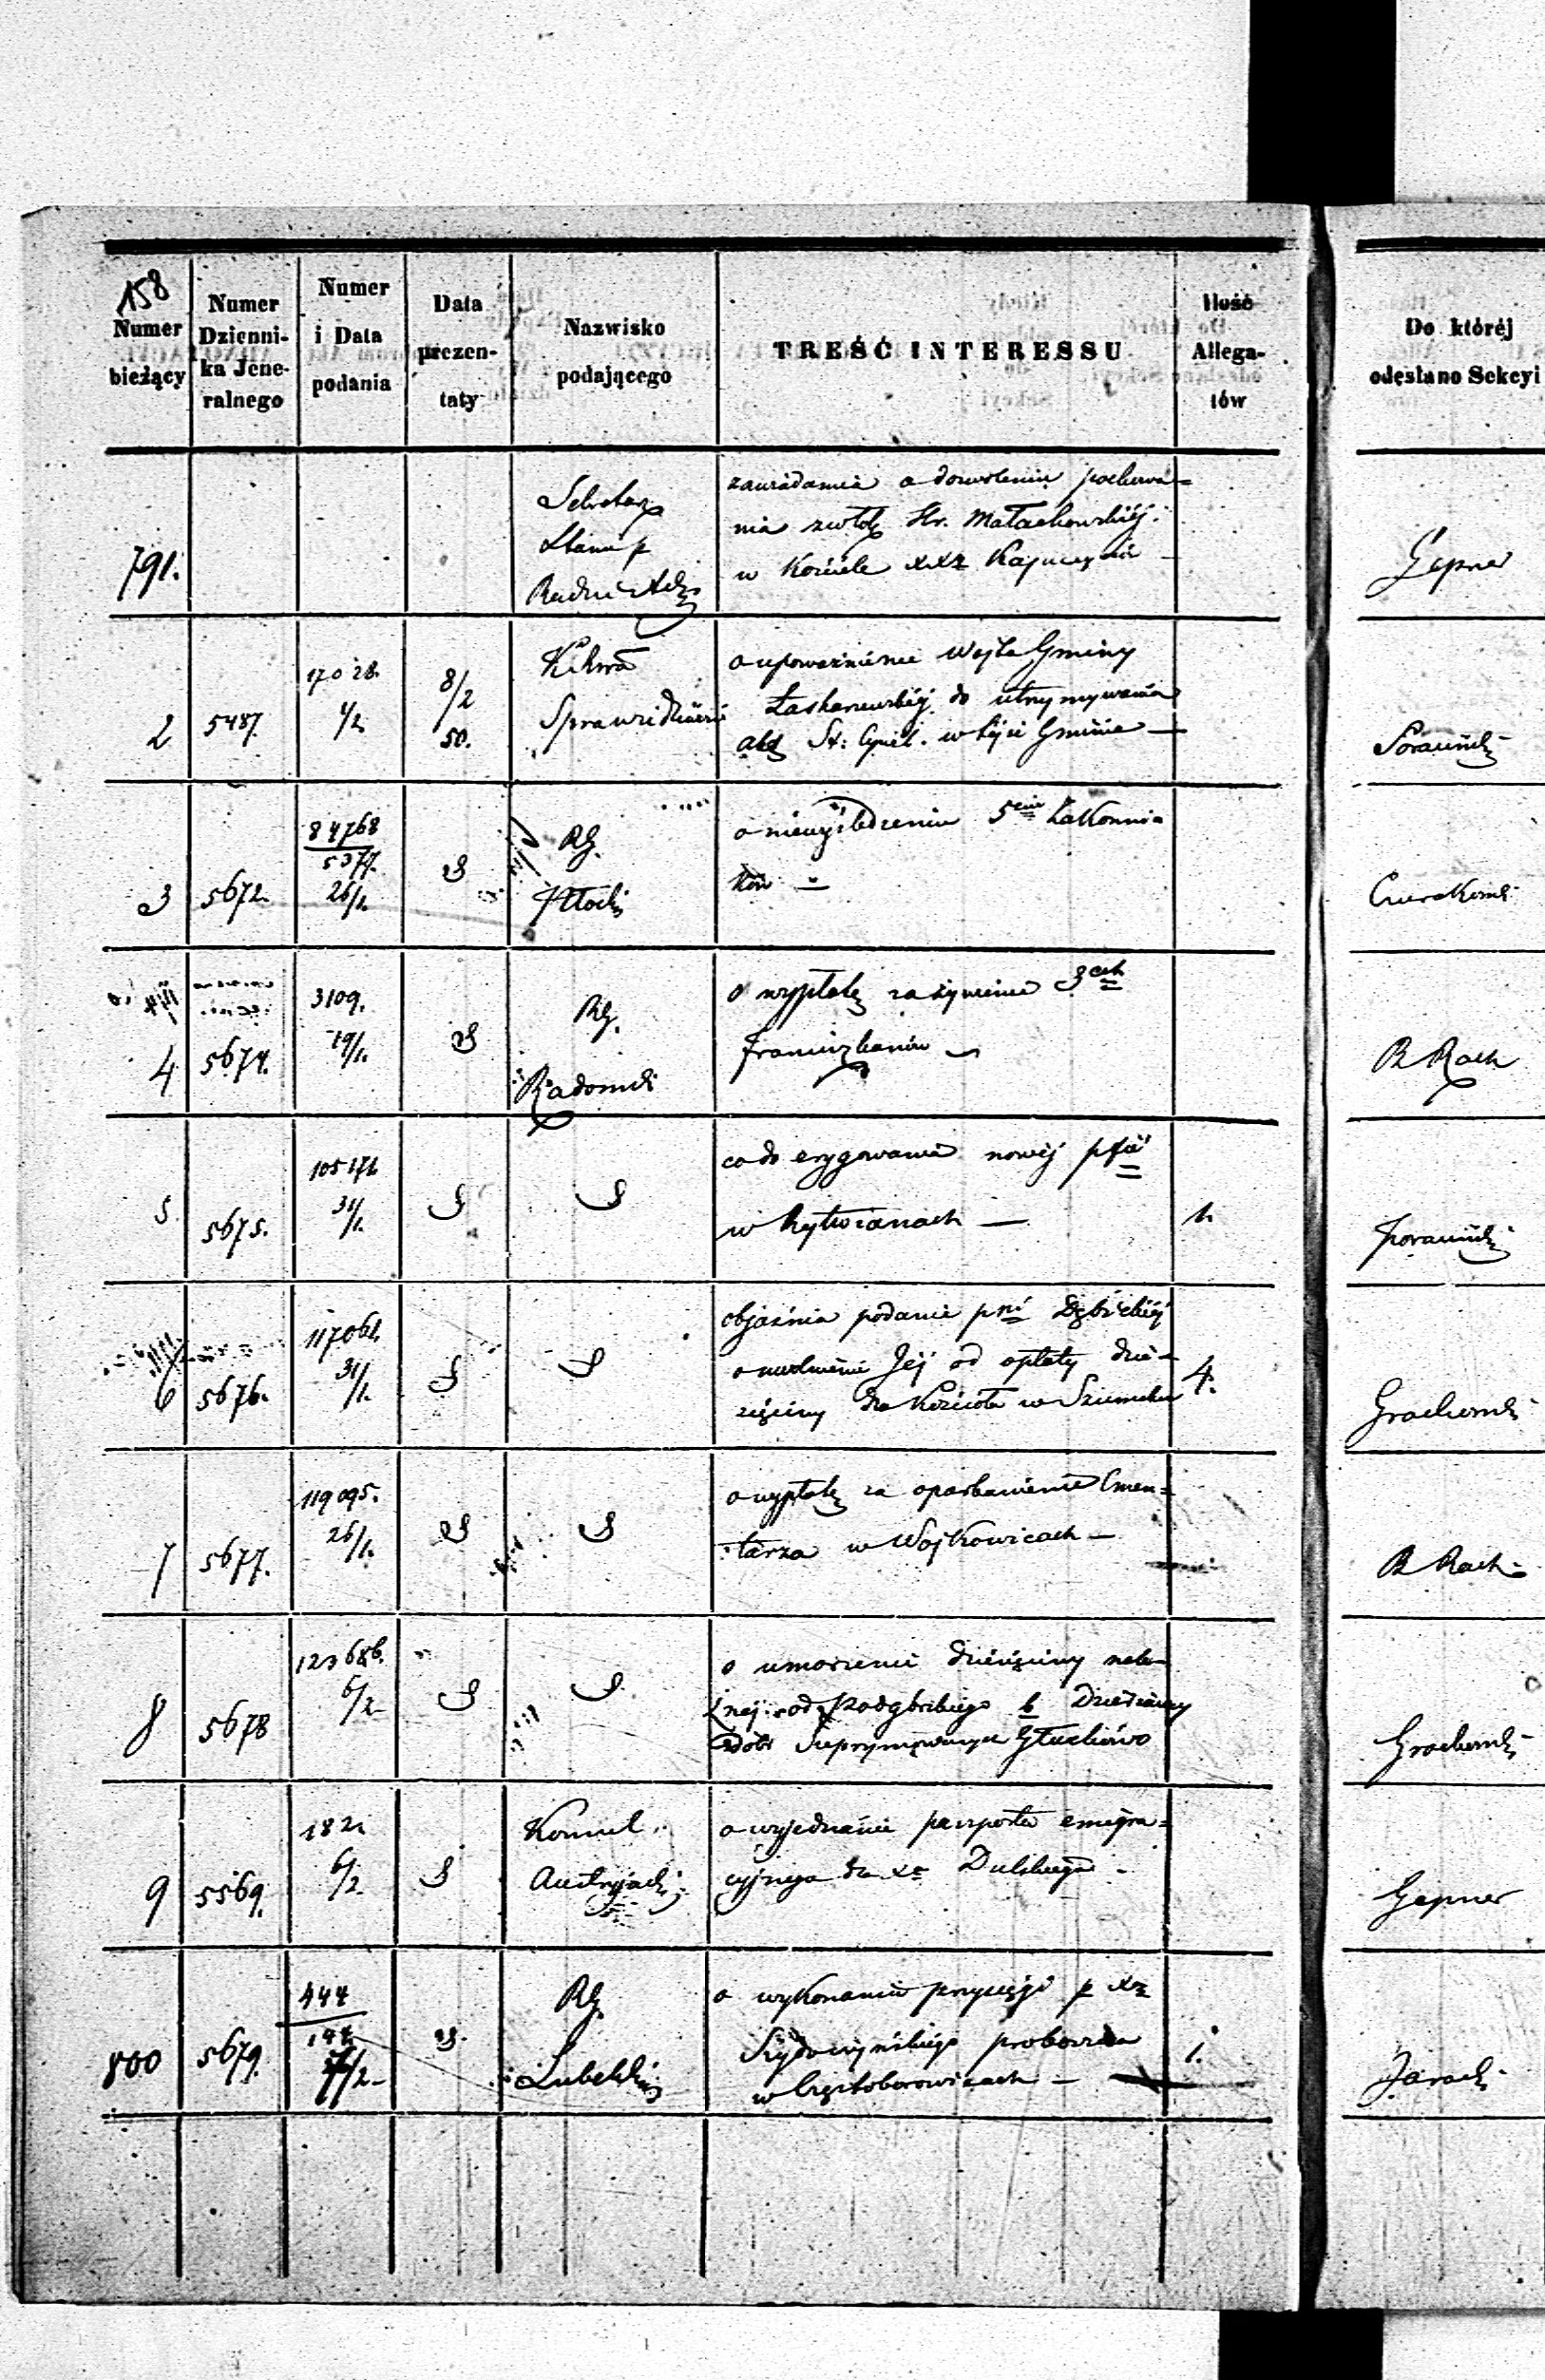 158
Numer
bieżący
Numer
Dzienni-
ka Jene-
ralnego
Numer
i Data
podania
Data
prezen-
taty
Nazwisko
podającego
TREŚĆ INTERESSU
Ilość
Allega-
tów
Do któréj
odesłano Sekcyi
791.
Sekretarz
Stanu p
zawiadamia o dozwoleniu pochowa=
nia zwłok Hr. Małachowskiéj
w Kościele xxz Kapucynów —
Gepner
2
5487.
17028.
4/2
8/2
50.
Sprawiedliwości
o upoważnienie Wojta Gminy
Łaskarzewskiéj do utrzymywania
akt St: Cywil. w téjże Gminie —
3
5672.
84768
5377.
26/1.
RG.
Płocki
o niewyśledzeniu 5ciu Zakonni=
ków —
4
5674.
3109.
19/1.
RG.
Radomski
o wypłatę za żywienie 3ech
Franciszkanów —
B Rach
5
5675.
105171.
31/1.
co do erygowania nowéj pfii
w Rytwianach —
1.
6
5676.
117061.
31/1.
objaśnia podanie pni Dębickiéj
o uwolnienie Jéj od opłaty dzie=
sięciny dla Kościoła w Szumsku
4.
Grochowski
7
5677.
119095.
26/1.
o wypłatę za oparkanienie Cmen=
tarza w Wojkowicach —
B Rach
8
5678
123686.
6/2
o umorzenie dziesięciny nale=
żnej od Podgórskiego b Dzierżawcy
dóbr Suprymowanych Głuchów
Grochowski
9
5569.
182.
6/2.
Konsul
Austryacki
o wyjednanie paszportu emigra=
cyjnego dla xa Dulskiego —
Gepner
800
5679.
444
142
7/2
RG.
Lubelski
o wykonaniu przysięgi p xz
Szydłowskiego proboszcza
w Częstoborowicach —
1.
Jaracki